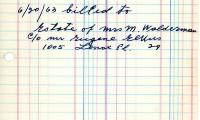 6/20/63 billed to
Estate of Mrs M. Walderman
c/o Mr Eugene Elkus
1005 Lenox Pl. 29